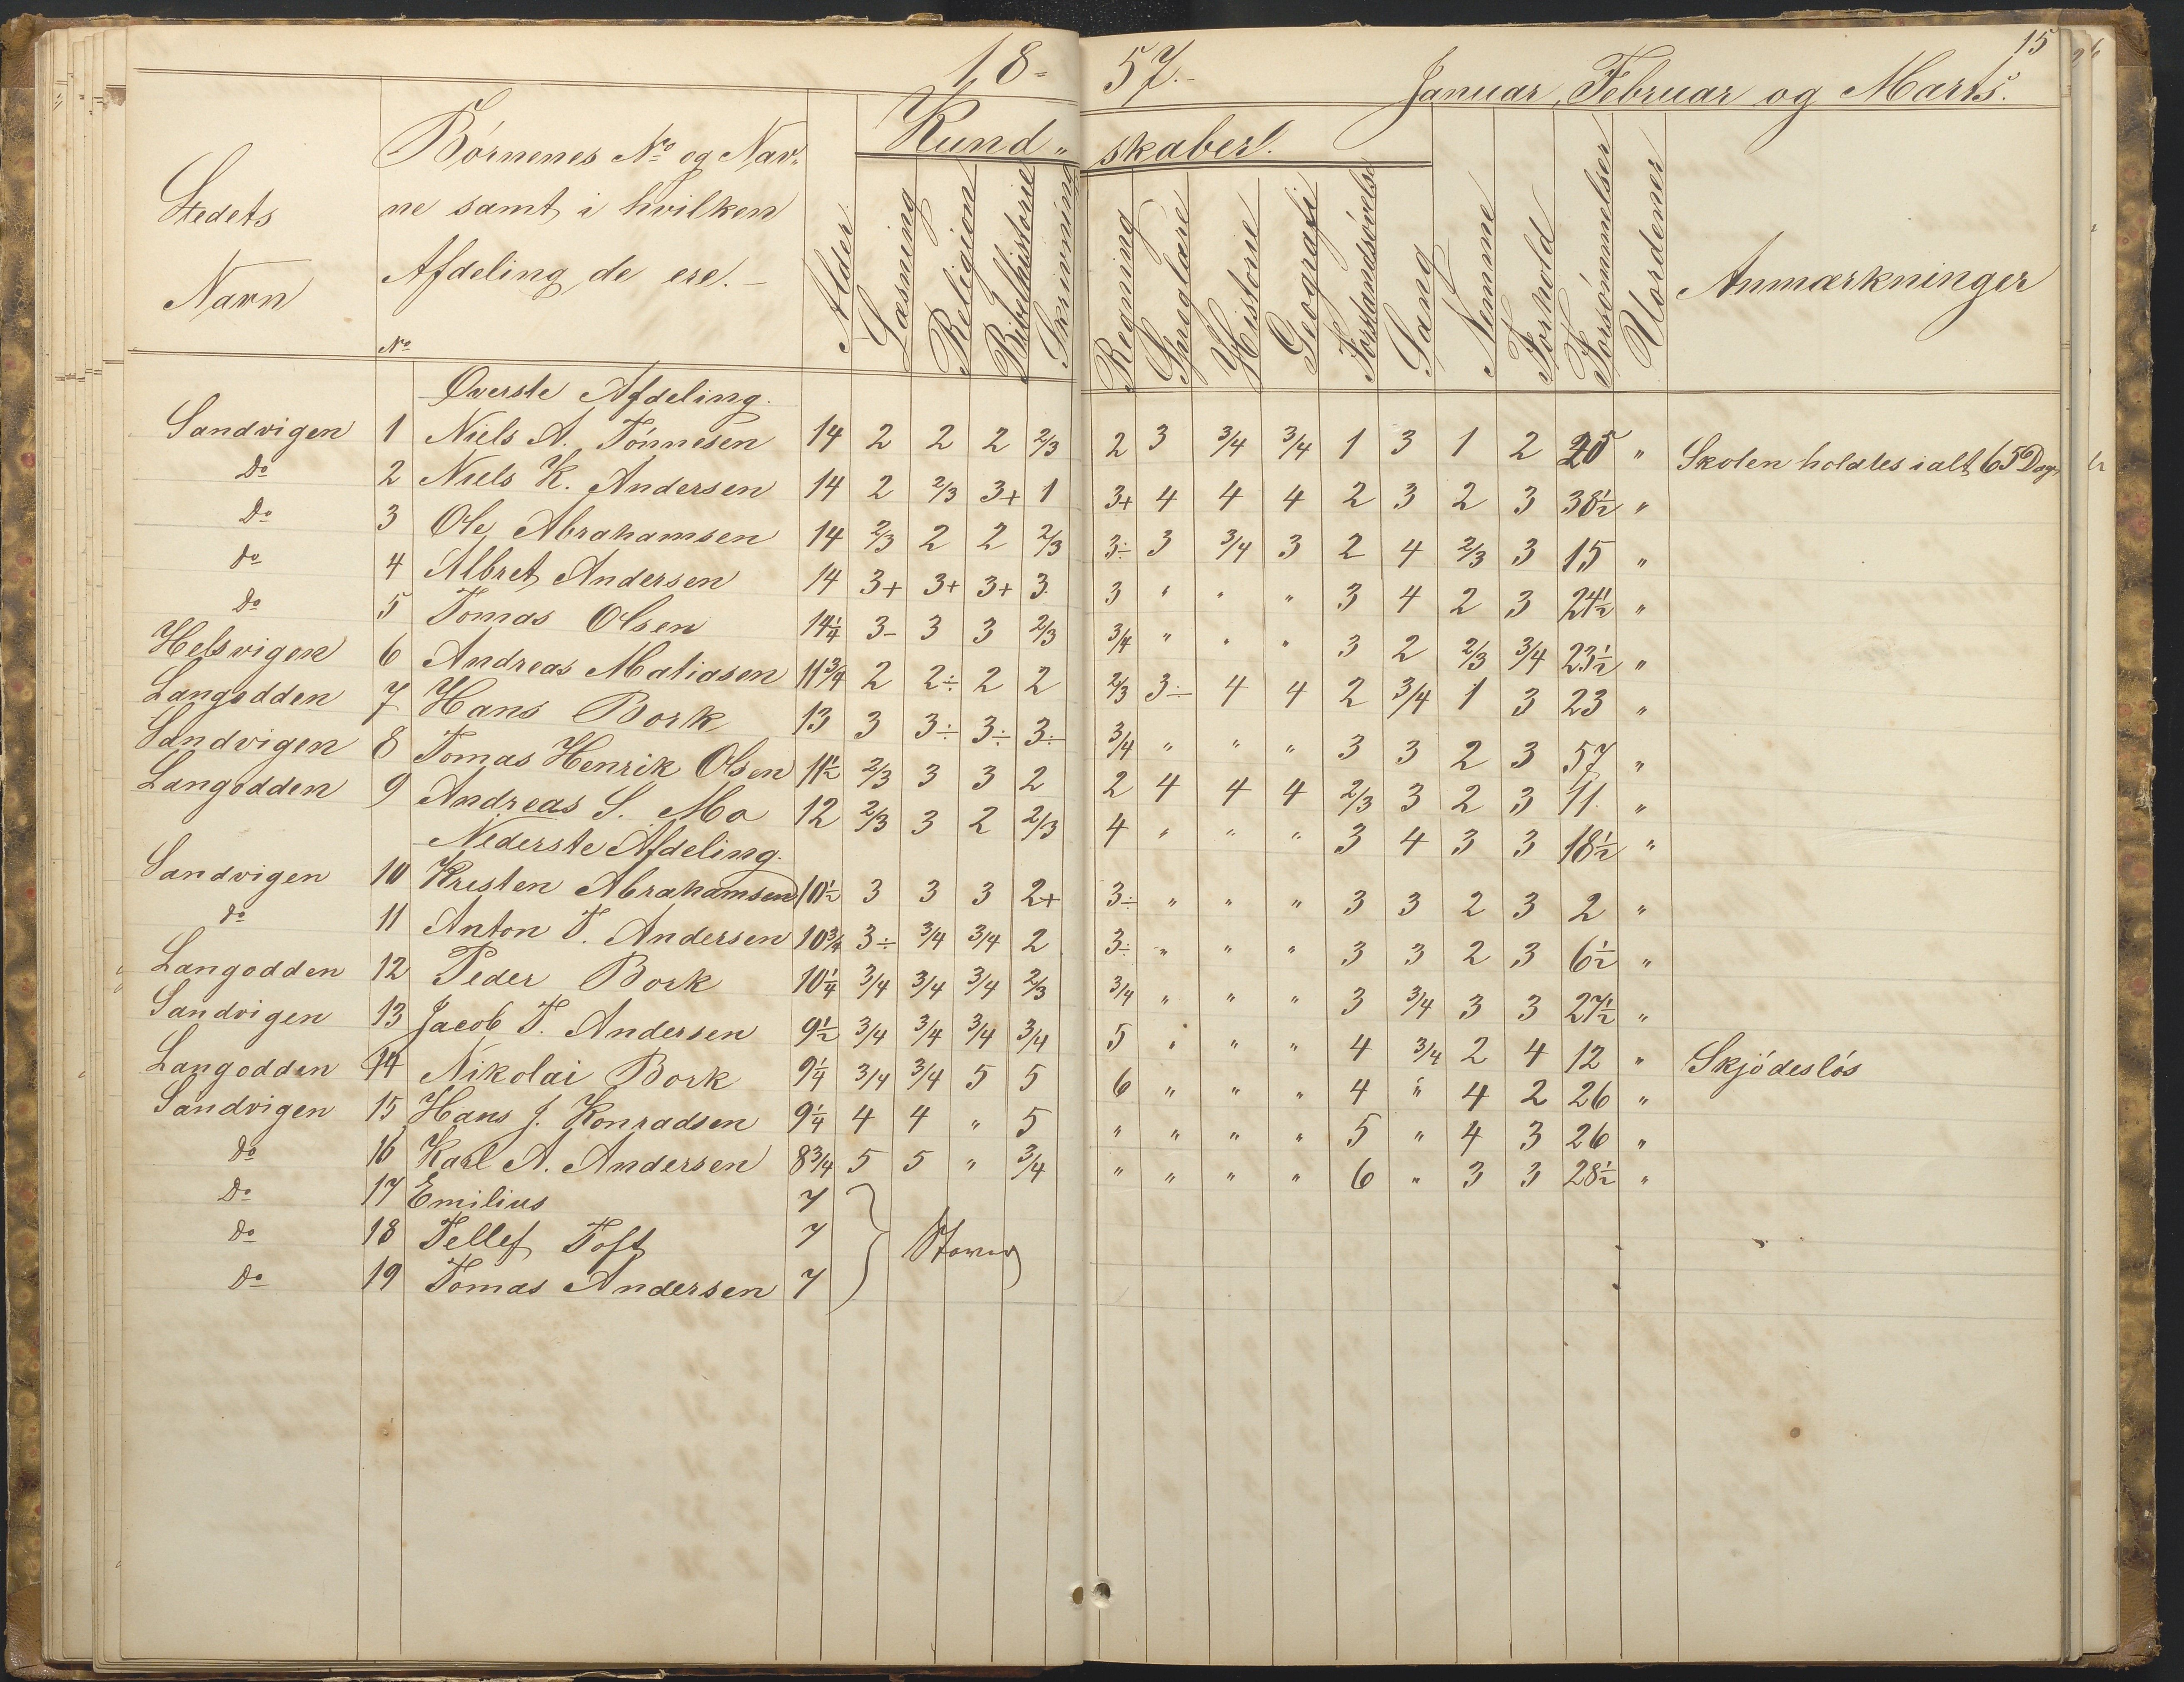 18-57.-
15
Januar, Februar og Marts.
Stedets Navn
Börnenes No og Nav-
ne samt i hvilken
Afdeling de ere. -
No
Alder
Kund-skaber.
Læsning Religion Bibelhistorie Skrivning Regning Sproglære Historie Geografi Forstandsövelse Sang Nemme Forhold Forsömmelser Uordener Anmærkninger
Överste Afdeling.
Sandvigen 1 Niels A. Tönnesen 14 2 2 2 2/3 2 3 3/4 3/4 1 3 1 2 " Skolen holdtes ialt 65 Dage
Do 2 Niels K. Andersen 14 2 2/3 3+ 1 3+ 4 4 4 2 3 2 3 38½ "
Do 3 Ole Abrahamsen 14 2/3 2 2 2/3 3÷ 3 3/4 3 2 4 2/3 3 15 "
do 4 Albret Andersen 14 3+ 3+ 3+ 3. 3 " " " 3 4 2 3 24½ "
Do 5 Tomas Olsen 14¼ 3- 3 3 2/3 3/4 " " " 3 2 2/3 3/4 23½ "
Helsvigen 6 Andreas Matiasen 11¾ 2 2÷ 2 2 2/3 3÷ 4 4 2 3/4 1 3 23 "
Langodden 7 Hans Bork 13 3 3÷ 3÷ 3÷ 3/4 " " " 3 3 2 3 57 "
Sandvigen 8 Tomas Henrik Olsen 11½ 2/3 3 3 2 2 4 4 4 2/3 3 2 3 11. "
Langodden 9 Andreas S. Mo 12 2/3 3 2 2/3 4 " " " 3 4 3 3 18½ "
Nederste Afdeling.
Sandvigen 10 Kristen Abrahamsen 10½ 3 3 3 2+ 3÷ " " " 3 3 2 3 2 "
do 11 Anton T. Andersen 10¾ 3÷ 3/4 3/4 2 3÷ " " " 3 3 2 3 6½ "
Langodden 12 Peder Bork 10¼ 3/4 3/4 3/4 2/3 3/4 " " " 3 3/4 3 3 27½ "
Sandvigen 13 Jacob T. Andersen 9½ 3/4 3/4 3/4 3/4 5 " " " 4 3/4 2 4 12 " Skjödeslös
Langodden 14 Nikolai Bork 9¼ 3/4 3/4 5 5 6 " " " 4 " 4 2 26 "
Sandvigen 15 Hans J. Konradsen 9¼ 4 4 " 5 " " " " 5 " 4 3 26 "
Do 16 Karl A. Andersen 8¾ 5 5 " 3/4 " " " " 6 " 3 3 28½ "
Do 17 Emilius 7
Do 18 Tellef Toft 7
Do 19 Tomas Andersen 7